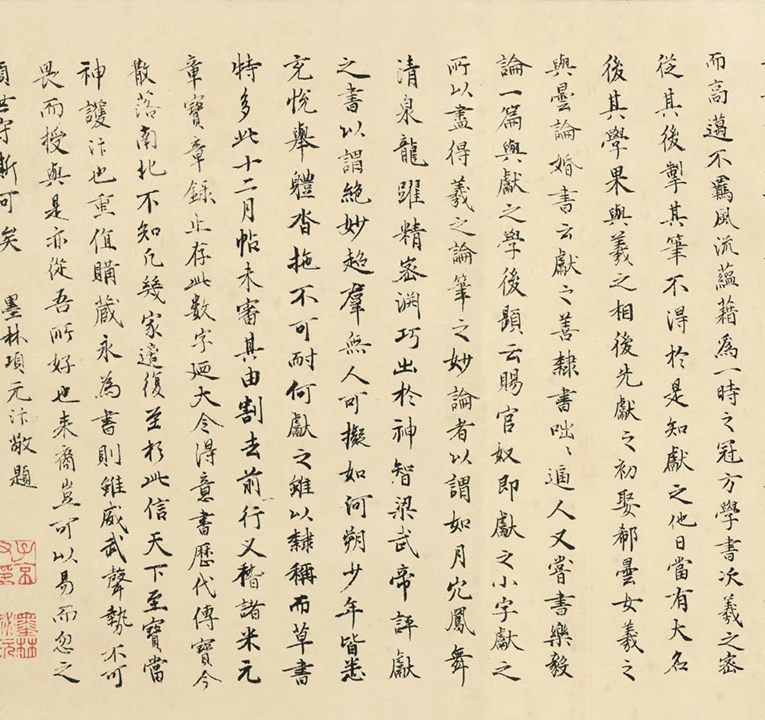 而高邁不羈風流蘊藉為一時之冠方學書次羲之密
從其後掣其筆不得於是知獻之他日當有大名
後其學果與羲之相後先獻之初娶郗曇女羲之
與曇論婚書云獻之善隸書咄〻逼人又嘗書樂毅
論一篇與獻之學後題云賜官奴即獻之小字獻之
所以盡得羲之論筆之妙論者以謂如丹穴鳳舞
清泉龍躍精密淵巧出於神智梁武帝評獻
之書以謂絕妙超羣無人可擬如河朔少年皆悉
充悅舉軆沓拖不可耐何獻之雖以隸稱而草書
特多此十二月帖未審其由割去前一行又稽諸米元
章寶章錄止存此數字廼大令得意書歷代傳寶今
散落南北不知凡幾家邅復至於此信天下至寶當
神護汴也重值購藏永為書則雖威武聲勢不可
畏而授與是亦從吾所好也来裔豈可以易而忽之
世守斯可矣 墨林項元汴敬題
子京
墨林